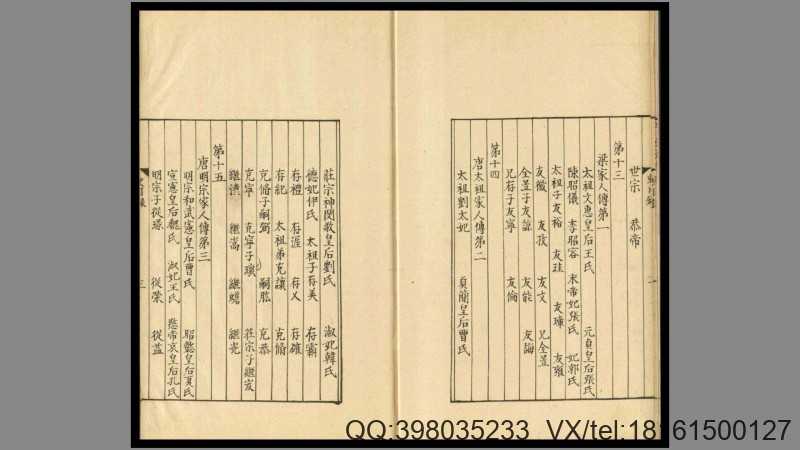 世宗 恭帝
第十三
梁家人傳第一
太祖文惠皇后王氏 元貞皇后張氏
陳昭儀 李昭容 末帝妃張氏 妃郭氏
太祖子友裕 友珪 友璋 友雍
友徽 友孜 友文 兄全昱
全昱子友諒 友能 友誨
兄存子友寧 友倫
第十四
唐太祖家人傳第二
太祖劉太妃 貞簡皇后曹氏
莊宗神閔敬皇后劉氏 淑妃韓氏
德妃伊氏 太祖子存美 存霸
存禮 存渥 存乂 存確
存紀 太祖弟克讓 克脩
克脩子嗣弼 嗣肱 克恭
克寧 克寧子瓌 莊宗子繼岌
繼潼 繼嵩 繼蟾 繼嶢
第十五
唐明宗家人傳第三
明宗和武憲皇后曹氏 昭懿皇后夏氏
宣憲皇后魏氏 淑妃王氏 愍帝哀皇后孔氏
明宗子從璟 從榮 從益
三
QQ:398035233 VX/tel:18161500127